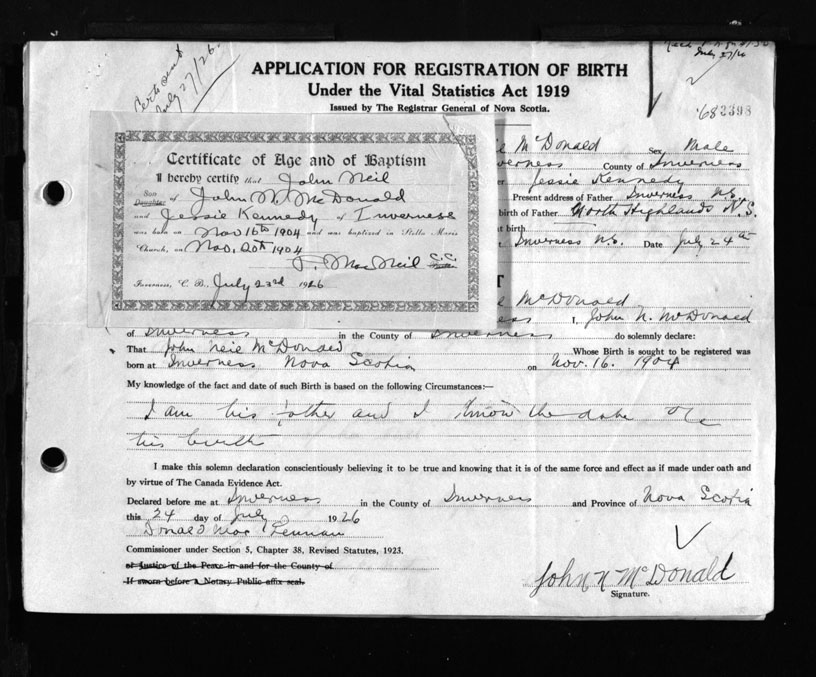 Cert sent
July 27/26
July 27/26
APPLICATION FOR REGISTRATION OF BIRTH
Under the Vital Statistics Act 1919
Issued by The Registrar General of Nova Scotia.
683398
Certificate of Age and of Baptism
I hereby certify that John Neil
Son
Daughter of John N. McDonald
and Jessie Kennedy of Inverness
was born on Nov 16th 1904 and was baptised in Stella Maris
Church, on Nov. 20th 1904
MacNeil C.C.
Inverness, C. B., July 23rd 1926
McDonald Sex Male
County of Inverness
Jessie Kennedy
Present address of Father Inverness N.S.
birth of Father North Highlands N.S.
at birth
Inverness N.S. Date July 24th
McDonald
I, John N. McDonald
of Inverness in the County of Inverness do solemnly declare:
That John Neil McDonald Whose Birth is sought to be registered was
born at Inverness Nova Scotia on Nov. 16. 1904
My knowledge of the fact and date of such Birth is based on the following Circumstances:—
I am his father and I know the date of
his birth
I make this solemn declaration conscientiously believing it to be true and knowing that it is of the same force and effect as if made under oath and
by virtue of The Canada Evidence Act.
Declared before me at Inverness in the County of Inverness and Province of Nova Scotia
this 24 day of July 1926
Donald MacLennan
Commissioner under Section 5, Chapter 38, Revised Statutes, 1923.
or Justice of the Peace in and for the County of
If sworn before a Notary Public affix seal.
John N McDonald
Signature.